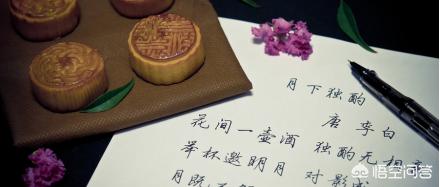 月下独酌
唐 李白
花间一壶酒 独酌无相
举杯邀明月 对影
月既不
悟空问答